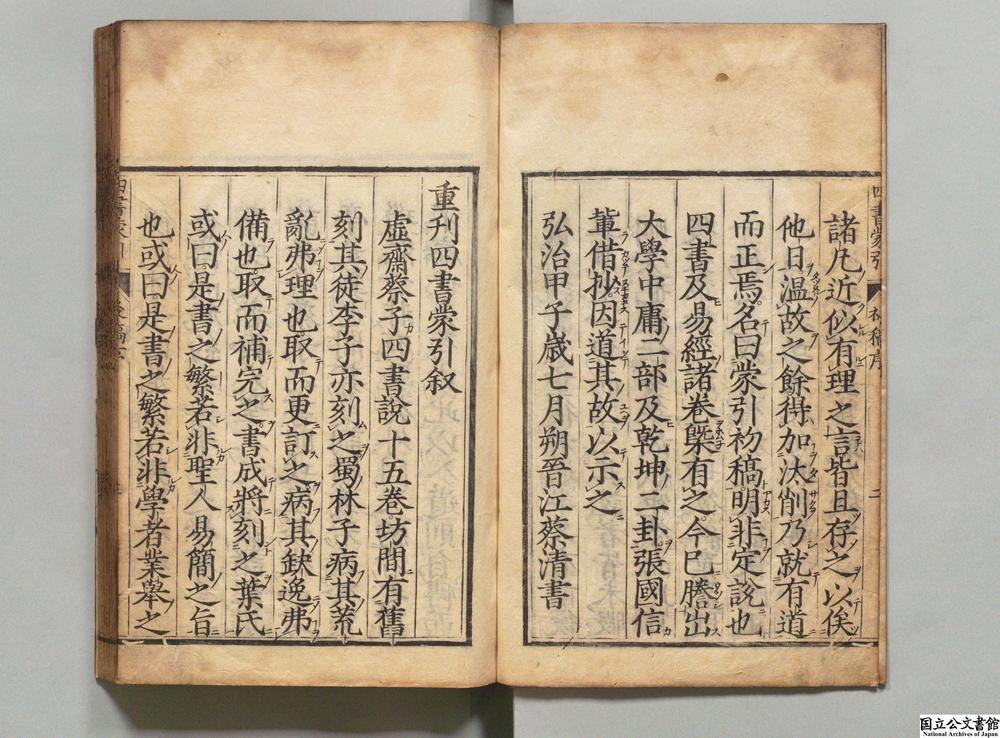 諸凡近似有理之言皆且存之以俟
他日溫故之餘得加汰削乃就有道
而正焉名曰蒙引初稿明非定說也
四書及易經諸卷槩有之今已謄出
大學中庸二部及乾坤二卦張國信
軰借抄因道其故以示之
弘治甲子歲七月朔晉江蔡清書
重刊四書蒙引叙
虛齋蔡子四書說十五卷坊間有舊
刻其徒李子亦刻之蜀林子病其荒
亂弗理也取而更訂之病其缺逸弗
備也取而補完之書成將刻之葉氏
或曰是書之繁若非聖人易簡之旨
也或曰是書之繁若非學者業舉之
国立公文書館
National Archives of Japan